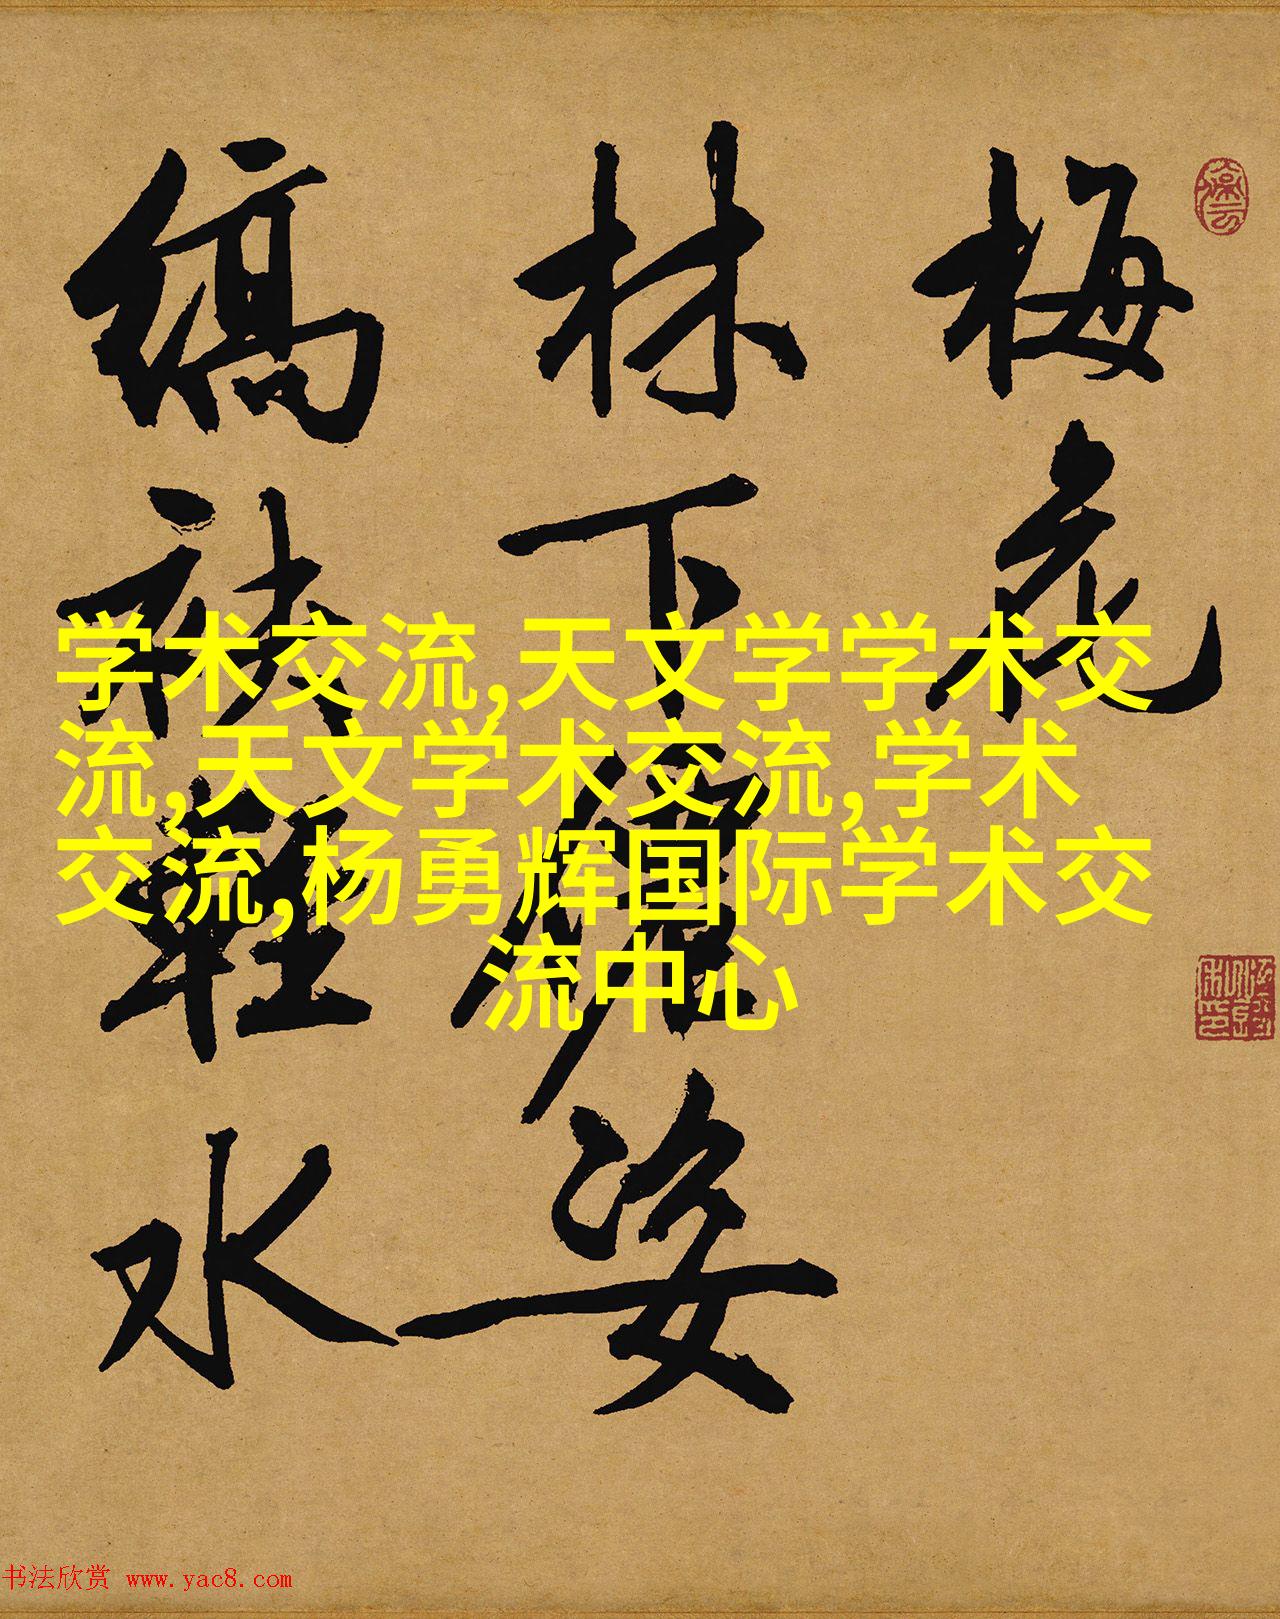 梅花
林下仙姿
缟袂轻水
学术交流,天文学学术交
流,天文学术交流,学术
交流,杨勇辉国际学术交
流中心
书法欣赏 www.yac8.com